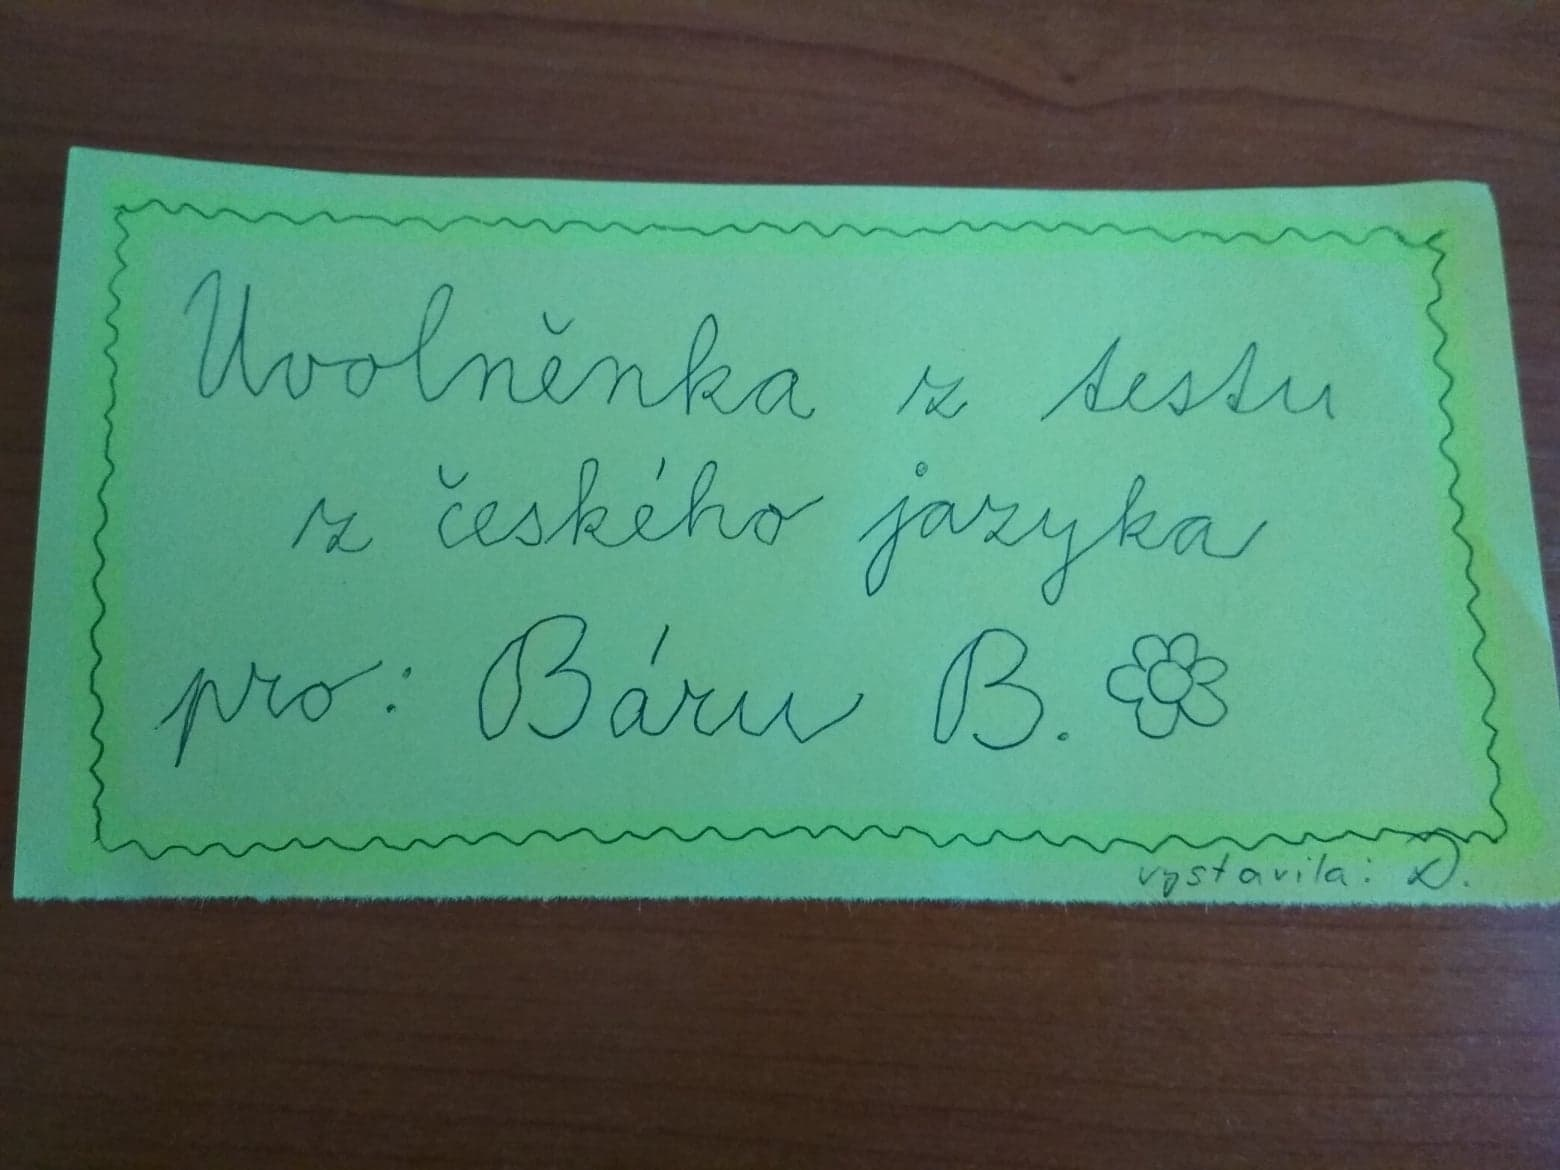 Uvolněnka z testu
z českého jazyka
pro: Báru B.
vystavila: D.